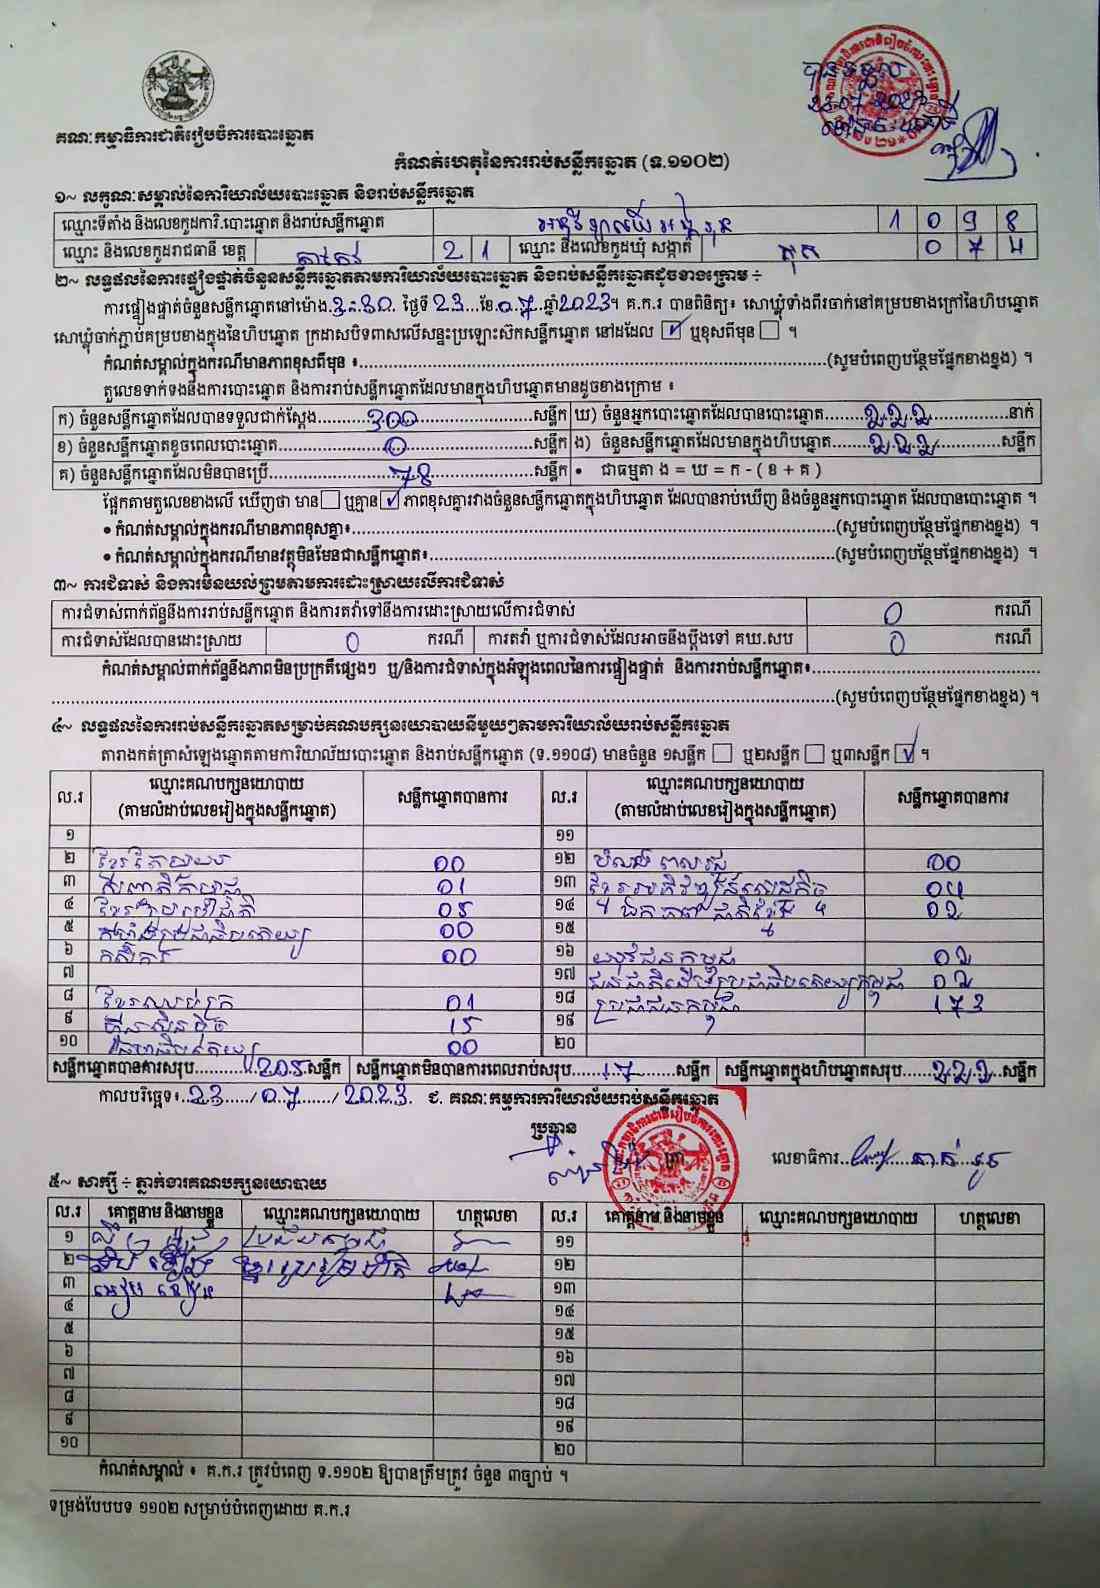 គណៈកម្មាធិការជាតិរៀបចំការបោះឆ្នោត
បានទទួល
កំណត់ហេតុនៃការរាប់សន្លឹកឆ្នោត (ទ.១១០២)
១~ លក្ខណៈសម្គាល់នៃការិយាល័យបោះឆ្នោត និងរាប់សន្លឹកឆ្នោត
ឈ្មោះទីតាំង និងលេខកូដការិ.បោះឆ្នោត និងរាប់សន្លឹកឆ្នោត 1 0 9 8
ឈ្មោះ និងលេខកូដរាជធានី ខេត្ត តាកែវ 2 1 ឈ្មោះ និងលេខកូដឃុំ សង្កាត់ 0 7 4
២~ លទ្ធផលនៃការផ្ទៀងផ្ទាត់ចំនួនសន្លឹកឆ្នោតតាមការិយាល័យបោះឆ្នោត និងរាប់សន្លឹកឆ្នោតដូចខាងក្រោម ÷
ការផ្ទៀងផ្ទាត់ចំនួនសន្លឹកឆ្នោតនៅម៉ោង 3:30 ថ្ងៃទី 23 ខែ 07 ឆ្នាំ 2023។ គ.ក.រ បានពិនិត្យ៖ សោឃ្លុំទាំងពីរចាក់នៅគម្របខាងក្រៅនៃហិបឆ្នោត
សោឃ្លុំចាក់ភ្ជាប់គម្របខាងក្នុងនៃហិបឆ្នោត ក្រដាសបិទពាសលើសន្ទះប្រឡោះស៊កសន្លឹកឆ្នោត នៅដដែល ☑ ឬខុសពីមុន ☐ ។
កំណត់សម្គាល់ក្នុងករណីមានភាពខុសពីមុន ៖ (សូមបំពេញបន្ថែមផ្នែកខាងខ្នង) ។
តួលេខទាក់ទងនឹងការបោះឆ្នោត និងការរាប់សន្លឹកឆ្នោតដែលមានក្នុងហិបឆ្នោតមានដូចខាងក្រោម ៖
ក) ចំនួនសន្លឹកឆ្នោតដែលបានទទួលជាក់ស្តែង 300 សន្លឹក ឃ) ចំនួនអ្នកបោះឆ្នោតដែលបានបោះឆ្នោត 222 នាក់
ខ) ចំនួនសន្លឹកឆ្នោតខូចពេលបោះឆ្នោត 0 សន្លឹក ង) ចំនួនសន្លឹកឆ្នោតដែលមានក្នុងហិបឆ្នោត 222 សន្លឹក
គ) ចំនួនសន្លឹកឆ្នោតដែលមិនបានប្រើ 78 សន្លឹក • ជាធម្មតា ង = ឃ = ក - ( ខ + គ )
ផ្អែកតាមតួលេខខាងលើ ឃើញថា មាន ☐ ឬគ្មាន ☑ ភាពខុសគ្នារវាងចំនួនសន្លឹកឆ្នោតក្នុងហិបឆ្នោត ដែលបានរាប់ឃើញ និងចំនួនអ្នកបោះឆ្នោត ដែលបានបោះឆ្នោត ។
• កំណត់សម្គាល់ក្នុងករណីមានភាពខុសគ្នា៖ (សូមបំពេញបន្ថែមផ្នែកខាងខ្នង) ។
• កំណត់សម្គាល់ក្នុងករណីមានវត្ថុមិនមែនជាសន្លឹកឆ្នោត៖ (សូមបំពេញបន្ថែមផ្នែកខាងខ្នង) ។
៣~ ការជំទាស់ និងការមិនយល់ព្រមតាមការដោះស្រាយលើការជំទាស់
ការជំទាស់ពាក់ព័ន្ធនឹងការរាប់សន្លឹកឆ្នោត និងការតវ៉ាទៅនឹងការដោះស្រាយលើការជំទាស់ 0 ករណី
ការជំទាស់ដែលបានដោះស្រាយ 0 ករណី ការតវ៉ា ឬការជំទាស់ដែលអាចនឹងប្តឹងទៅ គឃ.សប 0 ករណី
កំណត់សម្គាល់ពាក់ព័ន្ធនឹងភាពមិនប្រក្រតីផ្សេងៗ ឬ/និងការជំទាស់ក្នុងអំឡុងពេលនៃការផ្ទៀងផ្ទាត់ និងការរាប់សន្លឹកឆ្នោត៖
(សូមបំពេញបន្ថែមផ្នែកខាងខ្នង) ។
៤~ លទ្ធផលនៃការរាប់សន្លឹកឆ្នោតសម្រាប់គណបក្សនយោបាយនីមួយៗតាមការិយាល័យរាប់សន្លឹកឆ្នោត
តារាងកត់ត្រាសំឡេងឆ្នោតតាមការិយាល័យបោះឆ្នោត និងរាប់សន្លឹកឆ្នោត (ទ.១១០៨) មានចំនួន ១សន្លឹក ☐ ឬ២សន្លឹក ☐ ឬ៣សន្លឹក ☑ ។
ល.រ ឈ្មោះគណបក្សនយោបាយ (តាមលំដាប់លេខរៀងក្នុងសន្លឹកឆ្នោត) សន្លឹកឆ្នោតបានការ ល.រ ឈ្មោះគណបក្សនយោបាយ (តាមលំដាប់លេខរៀងក្នុងសន្លឹកឆ្នោត) សន្លឹកឆ្នោតបានការ
១ ១១
២ 00 ១២ 00
៣ 01 ១៣ ខ្មែរអភិវឌ្ឍន៍សេដ្ឋកិច្ច 04
៤ 05 ១៤ ឯកភាពជាតិខ្មែរ 02
៥ កម្លាំងប្រជាធិបតេយ្យ 00 ១៥
៦ កសិករ 00 ១៦ យុវជនកម្ពុជា 02
៧ ១៧ 02
៨ ខ្មែររួបរួម 01 ១៨ ប្រជាជនកម្ពុជា 173
៩ ហ៊្វុនស៊ិនប៉ិច 15 ១៩
១០ 00 ២០
សន្លឹកឆ្នោតបានការសរុប 205 សន្លឹក សន្លឹកឆ្នោតមិនបានការពេលរាប់សរុប 17 សន្លឹក សន្លឹកឆ្នោតក្នុងហិបឆ្នោតសរុប 222 សន្លឹក
កាលបរិច្ឆេទ៖ 23 / 07 / 2023 ជ. គណៈកម្មការការិយាល័យរាប់សន្លឹកឆ្នោត
ប្រធាន
លេខាធិការ
៥~ សាក្សី ÷ ភ្នាក់ងារគណបក្សនយោបាយ
ល.រ គោត្តនាម និងនាមខ្លួន ឈ្មោះគណបក្សនយោបាយ ហត្ថលេខា ល.រ គោត្តនាម និងនាមខ្លួន ឈ្មោះគណបក្សនយោបាយ ហត្ថលេខា
១ ១១
២ ១២
៣ ១៣
៤ ១៤
៥ ១៥
៦ ១៦
៧ ១៧
៨ ១៨
៩ ១៩
១០ ២០
កំណត់សម្គាល់ ៖ គ.ក.រ ត្រូវបំពេញ ទ.១១០២ ឱ្យបានត្រឹមត្រូវ ចំនួន ៣ច្បាប់ ។
ទម្រង់បែបបទ ១១០២ សម្រាប់បំពេញដោយ គ.ក.រ